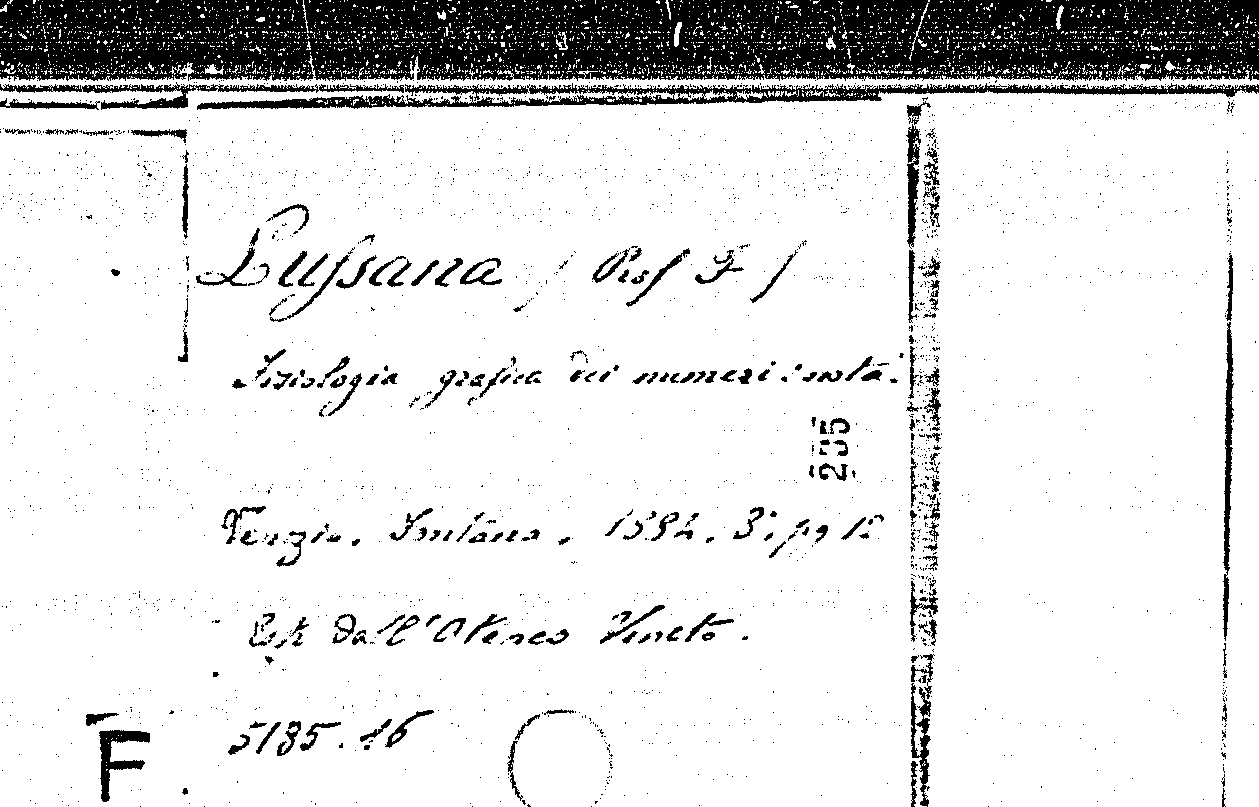 Lussana / Prof F /
Fisiologia grafica dei numeri
235
Venezia. Fontana. 8°; pg 12
Estr dall'Ateneo Veneto.
5135.16
F